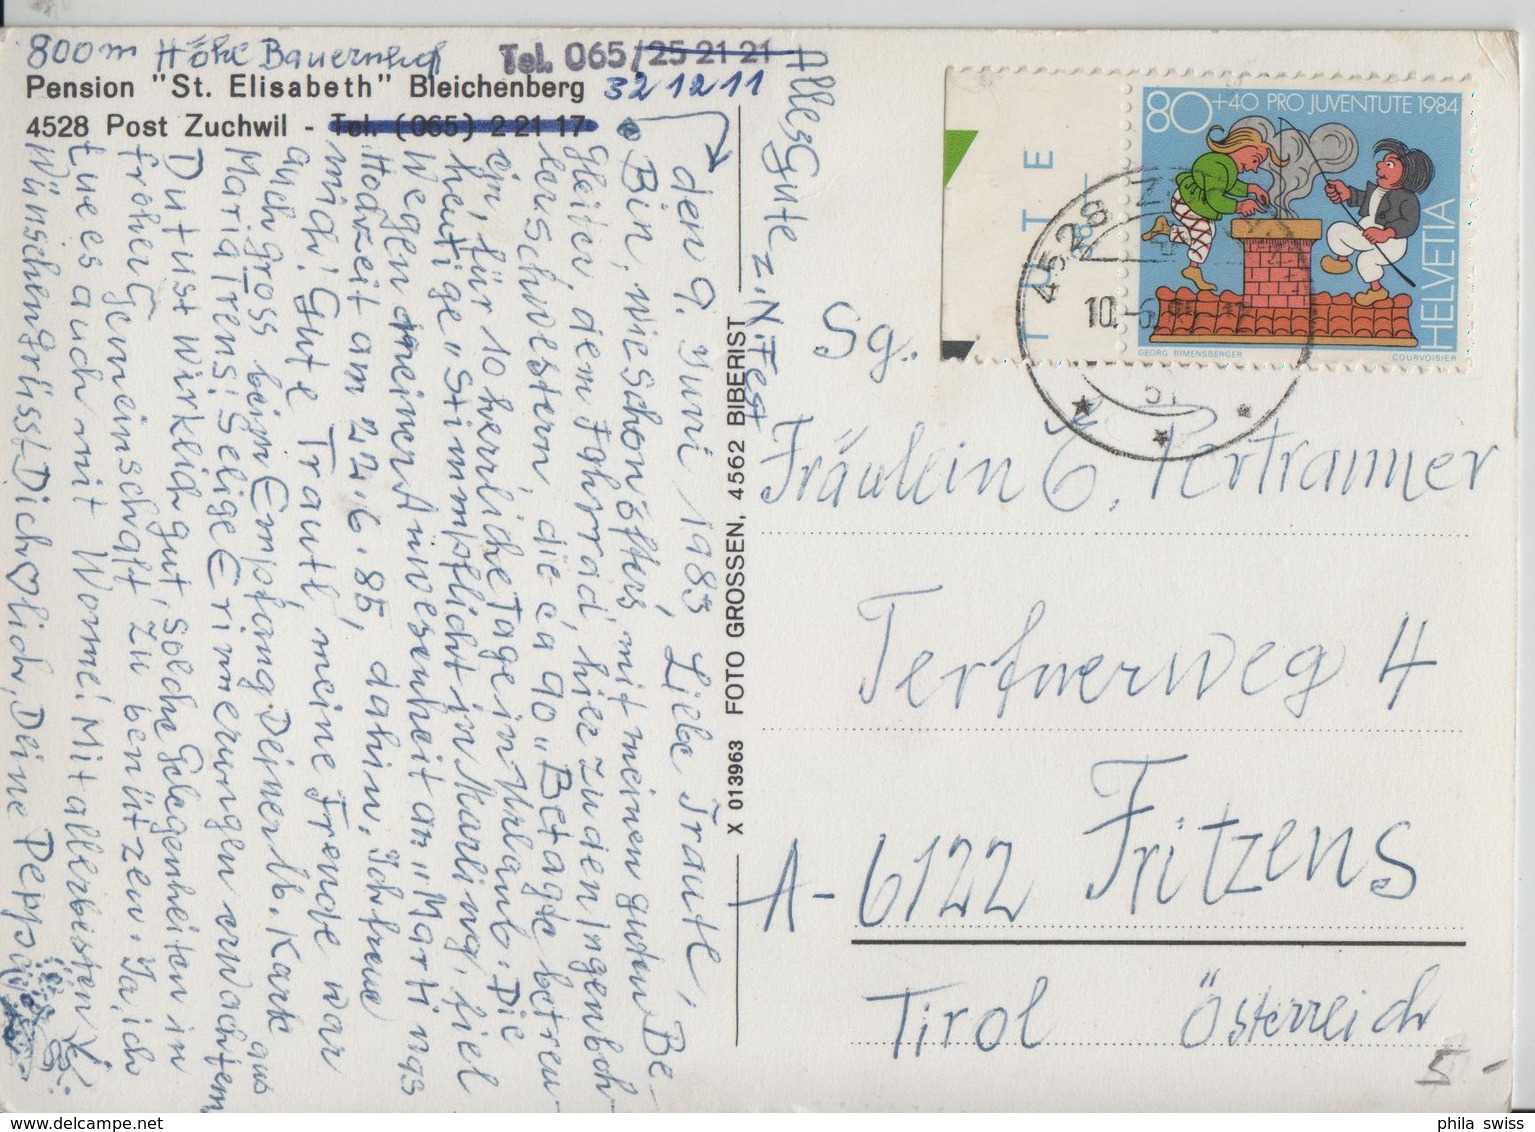 800m Höhe Bauernhof
Tel. 065/25 21 21
Pension "St. Elisabeth" Bleichenberg 32 12 11
4528 Post Zuchwil - Tel. (065) 2 21 17
den 9. Juni 1985 Liebe Traute,
Bin, wie schon öfters mit meinen guten Be-
gleiter, dem Fahrrad, hier zu den Ingenboh-
lerschwestern die ca 90 „Betagte betreu-
en, für 10 herrliche Tage in Urlaub. Die
heutige „Stimmpflicht in Marling, fiel
wegen meiner Anwesenheit an „Martinas
Hochzeit am 22.6.85, dahin. Ich freue
mich! Gute Trautl, meine Freude war
auch gross beim Empfang Deiner lb. Karte aus
Maria Trens! Selige Erinnerungen erwachten,
Du tust wirklich gut, solche Gelegenheiten in
froher Gemeinschaft, zu benützen. Ja, ich
tue es auch mit Wonne! Mit allerbesten
Wünschen grüsst Dich ♡lich, Deine Peppa
Alles Gute z. N. Fest
X 013963 FOTO GROSSEN, 4562 BIBERIST
80+40 PRO JUVENTUTE 1984
HELVETIA
GEORG RIMENSBERGER
COURVOISIER
UTE
4528
10.-6.
Sg.
Fräulein E. Pertramer
Terfnerweg 4
A-6122 Fritzens
Tirol Österreich
5.-
phila swiss